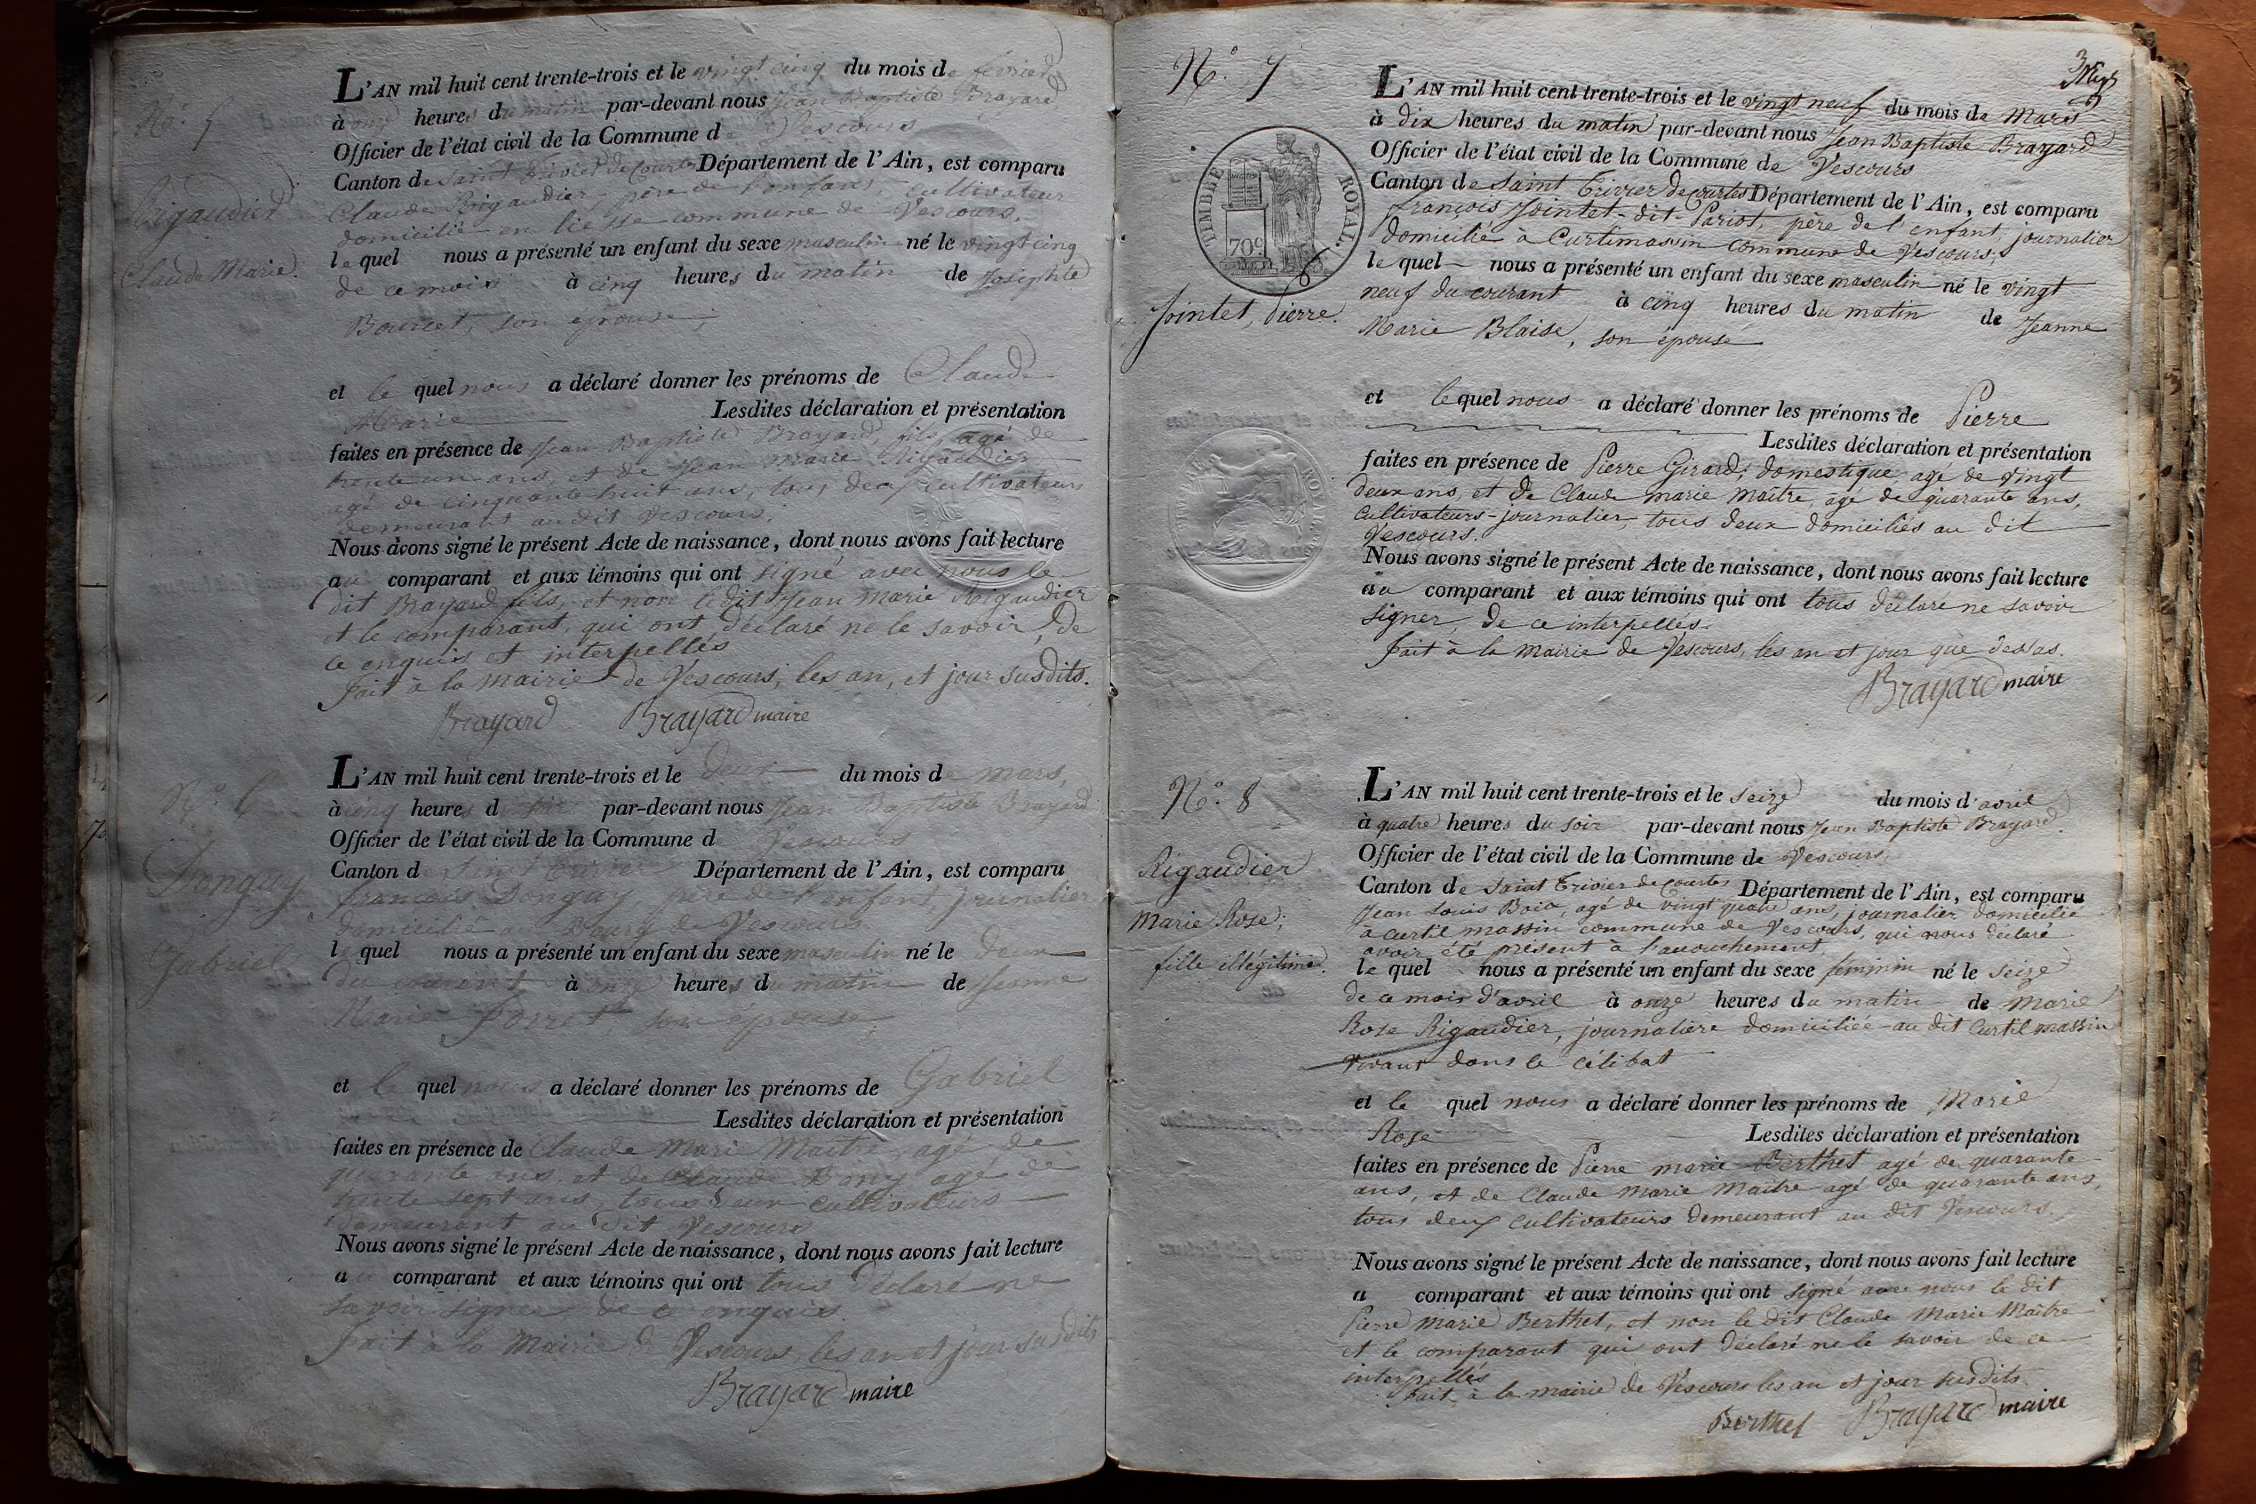 N.° 5
Rigaudier
Claude Marie.
L'AN mil huit cent trente-trois et le vingt cinq du mois de février
à onze heures du matin par-devant nous Jean Baptiste Brayard
Officier de l'état civil de la Commune de Vescours
Canton de Saint Trivier de Courtes Département de l'Ain, est comparu
Claude Rigaudier, père de l'enfant, cultivateur
domicilié en commune de Vescours,
le quel nous a présenté un enfant du sexe masculin né le vingt cinq
de ce mois à cinq heures du matin de Josephte
Bourcet, son épouse,
et le quel nous a déclaré donner les prénoms de Claude
Marie Lesdites déclaration et présentation
faites en présence de Jean Baptiste Brayard, fils, agé de
trente un ans, et de Jean Marie Rigaudier
agé de cinquante huit ans, tous deux cultivateurs
demeurant au dit Vescours.
Nous avons signé le présent Acte de naissance, dont nous avons fait lecture
au comparant et aux témoins qui ont signé avec nous le
dit Brayard fils, et non le dit Jean Marie Rigaudier
et le comparant, qui ont déclaré ne le savoir, de
ce enquis et interpellés
fait à la Mairie de Vescours, les an, et jour susdits.
Brayard Brayard maire
N.° 6
Donguy
Gabriel
L'AN mil huit cent trente-trois et le deux du mois de mars,
à cinq heures d soir par-devant nous Jean Baptiste Brayard
Officier de l'état civil de la Commune d Vescours
Canton d Saint Trivier Département de l'Ain, est comparu
francois Donguy père de l'enfant, journalier
domicilié au Bourg de Vescours
l quel nous a présenté un enfant du sexe masculin né le deux
du courant à onze heures du matin de Jeanne
Marie Porret son épouse,
et le quel nous a déclaré donner les prénoms de Gabriel
Lesdites déclaration et présentation
faites en présence de Claude Marie Maitre, agé de
quarante ans, et de Claude Bony agé de
trente sept ans, tous deux cultivateurs
demeurant au dit Vescours
Nous avons signé le présent Acte de naissance, dont nous avons fait lecture
au comparant et aux témoins qui ont tous déclaré ne
savoir signer de ce enquis
fait à la Mairie de Vescours les an et jour susdits
Brayard maire
N.° 7
TIMBRE ROYAL.
70c
Jointet, Pierre.
L'AN mil huit cent trente-trois et le vingt neuf du mois de Mars
à dix heures du matin par-devant nous Jean Baptiste Brayard
Officier de l'état civil de la Commune de Vescours
Canton de Saint Trivier de Courtes Département de l'Ain, est comparu
françois Jointet-dit-Pariot, père de l'enfant, journalier
domicilié à Curtimassin commune de Vescours,
le quel nous a présenté un enfant du sexe masculin né le vingt
neuf du courant à cinq heures du matin de Jeanne
Marie Blaise, son épouse
et le quel nous a déclaré donner les prénoms de Pierre
Lesdites déclaration et présentation
faites en présence de Pierre Girard, domestique agé de vingt
deux ans, et de Claude marie maitre, agé de quarante ans,
Cultivateurs-journalier, tous deux domiciliés au dit
Vescours.
Nous avons signé le présent Acte de naissance, dont nous avons fait lecture
au comparant et aux témoins qui ont tous déclaré ne savoir
signer, de ce interpellés.
fait à la Mairie de Vescours, les an et jour que dessus.
Brayard maire
N.° 8
Rigaudier
Marie Rose;
fille illégitime.
L'AN mil huit cent trente-trois et le seize du mois d'avril
à quatre heures du soir par-devant nous Jean Baptiste Brayard.
Officier de l'état civil de la Commune de Vescours,
Canton de Saint Trivier de Courtes Département de l'Ain, est comparu
Jean Louis agé de vingt quatre ans, journalier domicilié
à Curtil massin commune de Vescours, qui nous déclaré
avoir été présent à l'acouchement,
le quel nous a présenté un enfant du sexe féminin né le seize
de ce mois d'avril à onze heures du matin de Marie
Rose Rigaudier, journalière domiciliée au dit Curtil massin
vivant dans le célibat
et le quel nous a déclaré donner les prénoms de Marie
Rose Lesdites déclaration et présentation
faites en présence de Pierre marie Berthet agé de quarante
ans, et de Claude Marie Maitre agé de quarante ans,
tous deux cultivateurs demeurant au dit Vescours.
Nous avons signé le présent Acte de naissance, dont nous avons fait lecture
a comparant et aux témoins qui ont signé avec nous le dit
Pierre Marie Berthet, et non le dit Claude Marie Maitre
et le comparant qui ont déclaré ne le savoir de ce
interpellés
fait à la mairie de Vescours les an et jour susdits
Berthet Brayard maire